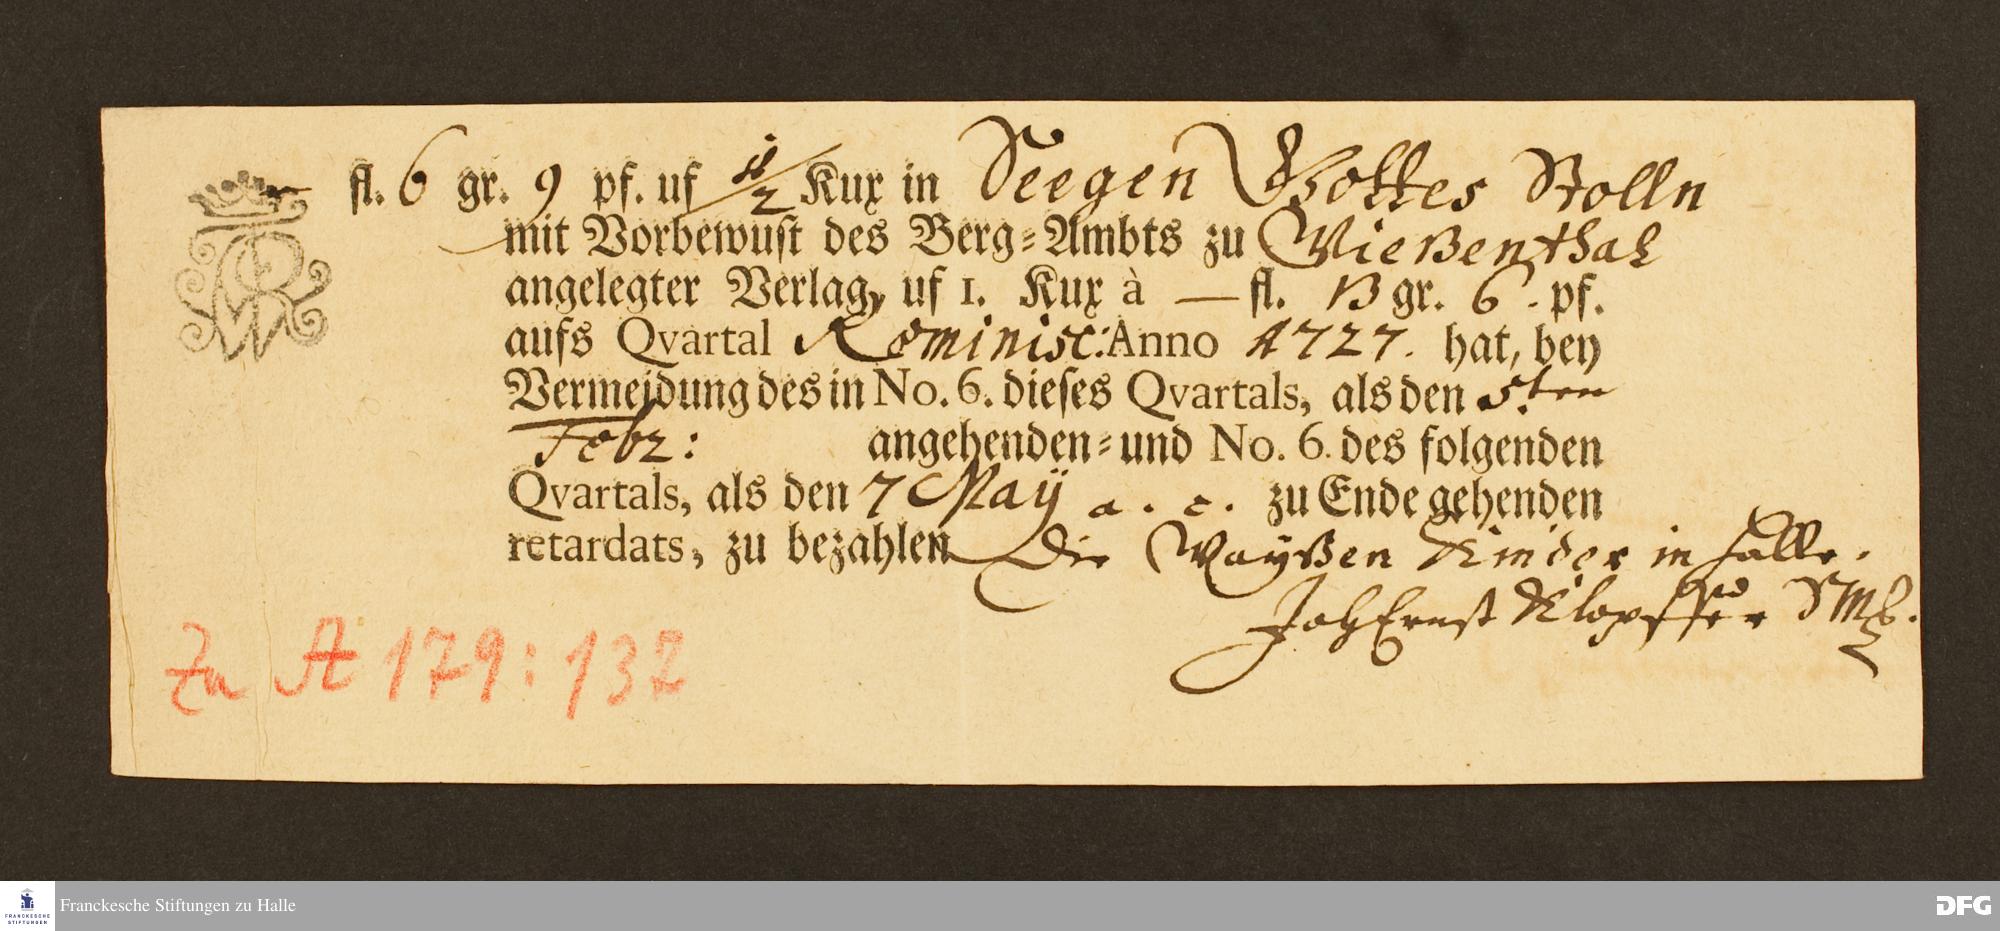 — fl. 6 gr. 9 pf. uf 1/2 Kux in Seegen Gottes Stolln
mit Vorbewust des Berg-Ambts zu Wießenthal
angelegter Verlag, uf 1. Kux à — fl. 13 gr. 6. pf.
aufs Qvartal Reminisc: Anno 1727. hat, bey
Vermeidung des in No. 6. dieses Qvartals, als den 5.ten
Febr: angehenden- und No. 6. des folgenden
Qvartals, als den 7 May a. c. zu Ende gehenden
retardats, zu bezahlen Die Wayßen Kinder in Halle.
Joh Ernst Klopffer
Zu A 179: 132
Franckesche Stiftungen zu Halle
FRANCKESCHE
STIFTUNGEN
DFG